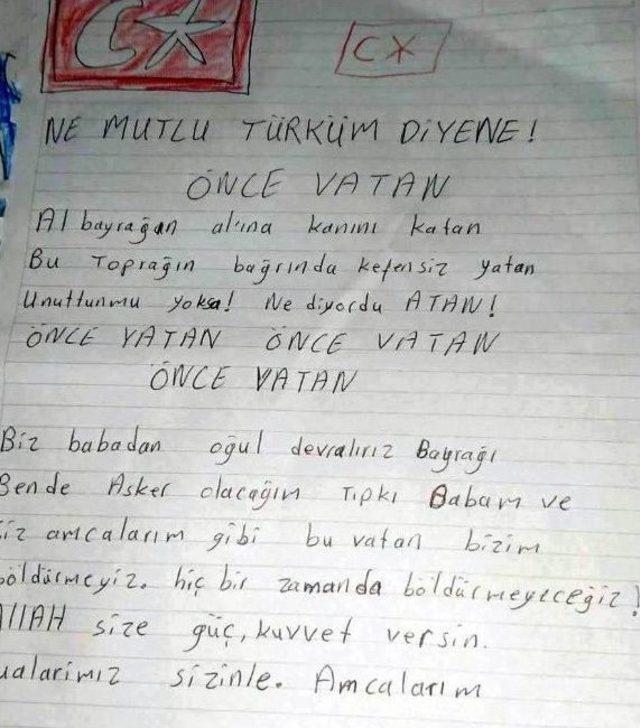 NE MUTLU TÜRKÜM DİYENE!
ÖNCE VATAN
Al bayrağan alına kanını katan
Bu Toprağın bağrında kefensiz yatan
Unuttunmu yoksa! Ne diyordu ATAN!
ÖNCE VATAN ÖNCE VATAN
ÖNCE VATAN
Biz babadan oğul devralırız Bayrağı
Bende Asker olacağım Tıpkı Babam ve
iz amcalarım gibi bu vatan bizim
böldürmeyiz. hiç bir zamanda böldürmeyeceğiz!
AllAH size güç, kuvvet versin.
ualarımız sizinle. Amcalarım